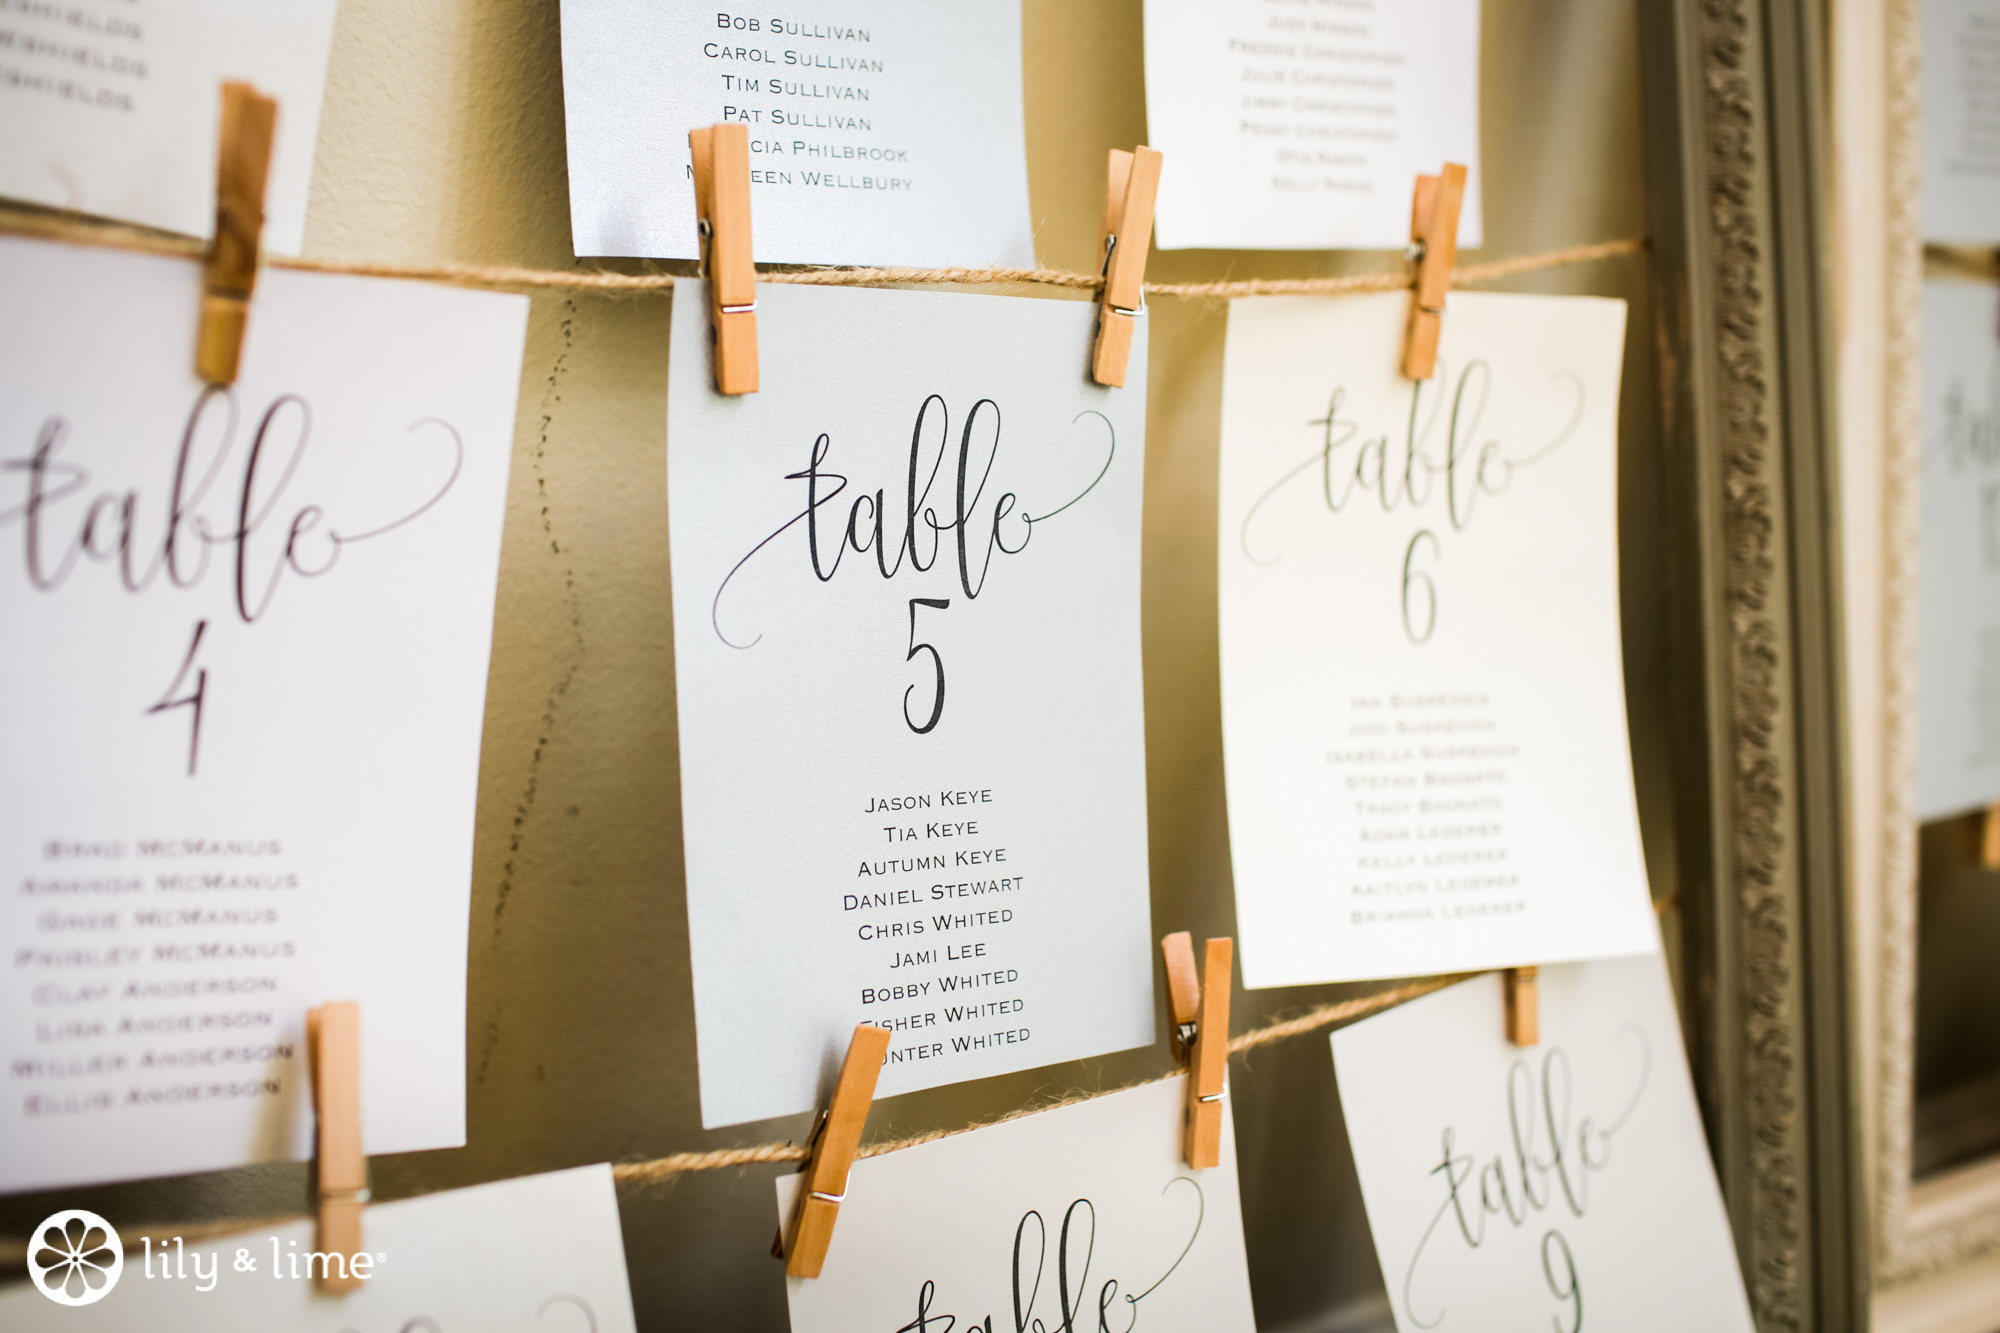 BOB SULLIVAN
CAROL SULLIVAN
TIM SULLIVAN
PAT SULLIVAN
CIA PHILBROOK
EEN WELLBURY
FREDDIE CHRISTOPHER
JULIE CHRISTOPHER
JIMMY CHRISTOPHER
PEGGY CHRISTOPHER
table
4
BRAD MCMANUS
AMANDA MCMANUS
GAGE MCMANUS
PAISLEY MCMANUS
CLAY ANDERSON
LISA ANDERSON
MILLER ANDERSON
ELLIS ANDERSON
table
5
JASON KEYE
TIA KEYE
AUTUMN KEYE
DANIEL STEWART
CHRIS WHITED
JAMI LEE
BOBBY WHITED
FISHER WHITED
UNTER WHITED
table
6
IAN SUSREVICH
JODI SUSREVICH
ISABELLA SUSREVICH
STEFAN BAGNATO
TRACY BAGNATO
ADAM LEDERER
KELLY LEDERER
KAITLYN LEDERER
BRIANNA LEDERER
table
table
9
lily & lime®